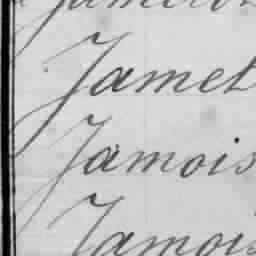 Jamet
Jamois
Jamois